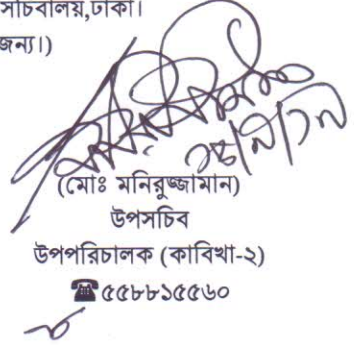 সচিবালয়,ঢাকা।
জন্য।)
(মোঃ মনিরুজ্জামান)
উপসচিব
উপপরিচালক (কাবিখা-২)
☎ ৫৫৮৮১৫৫৬০